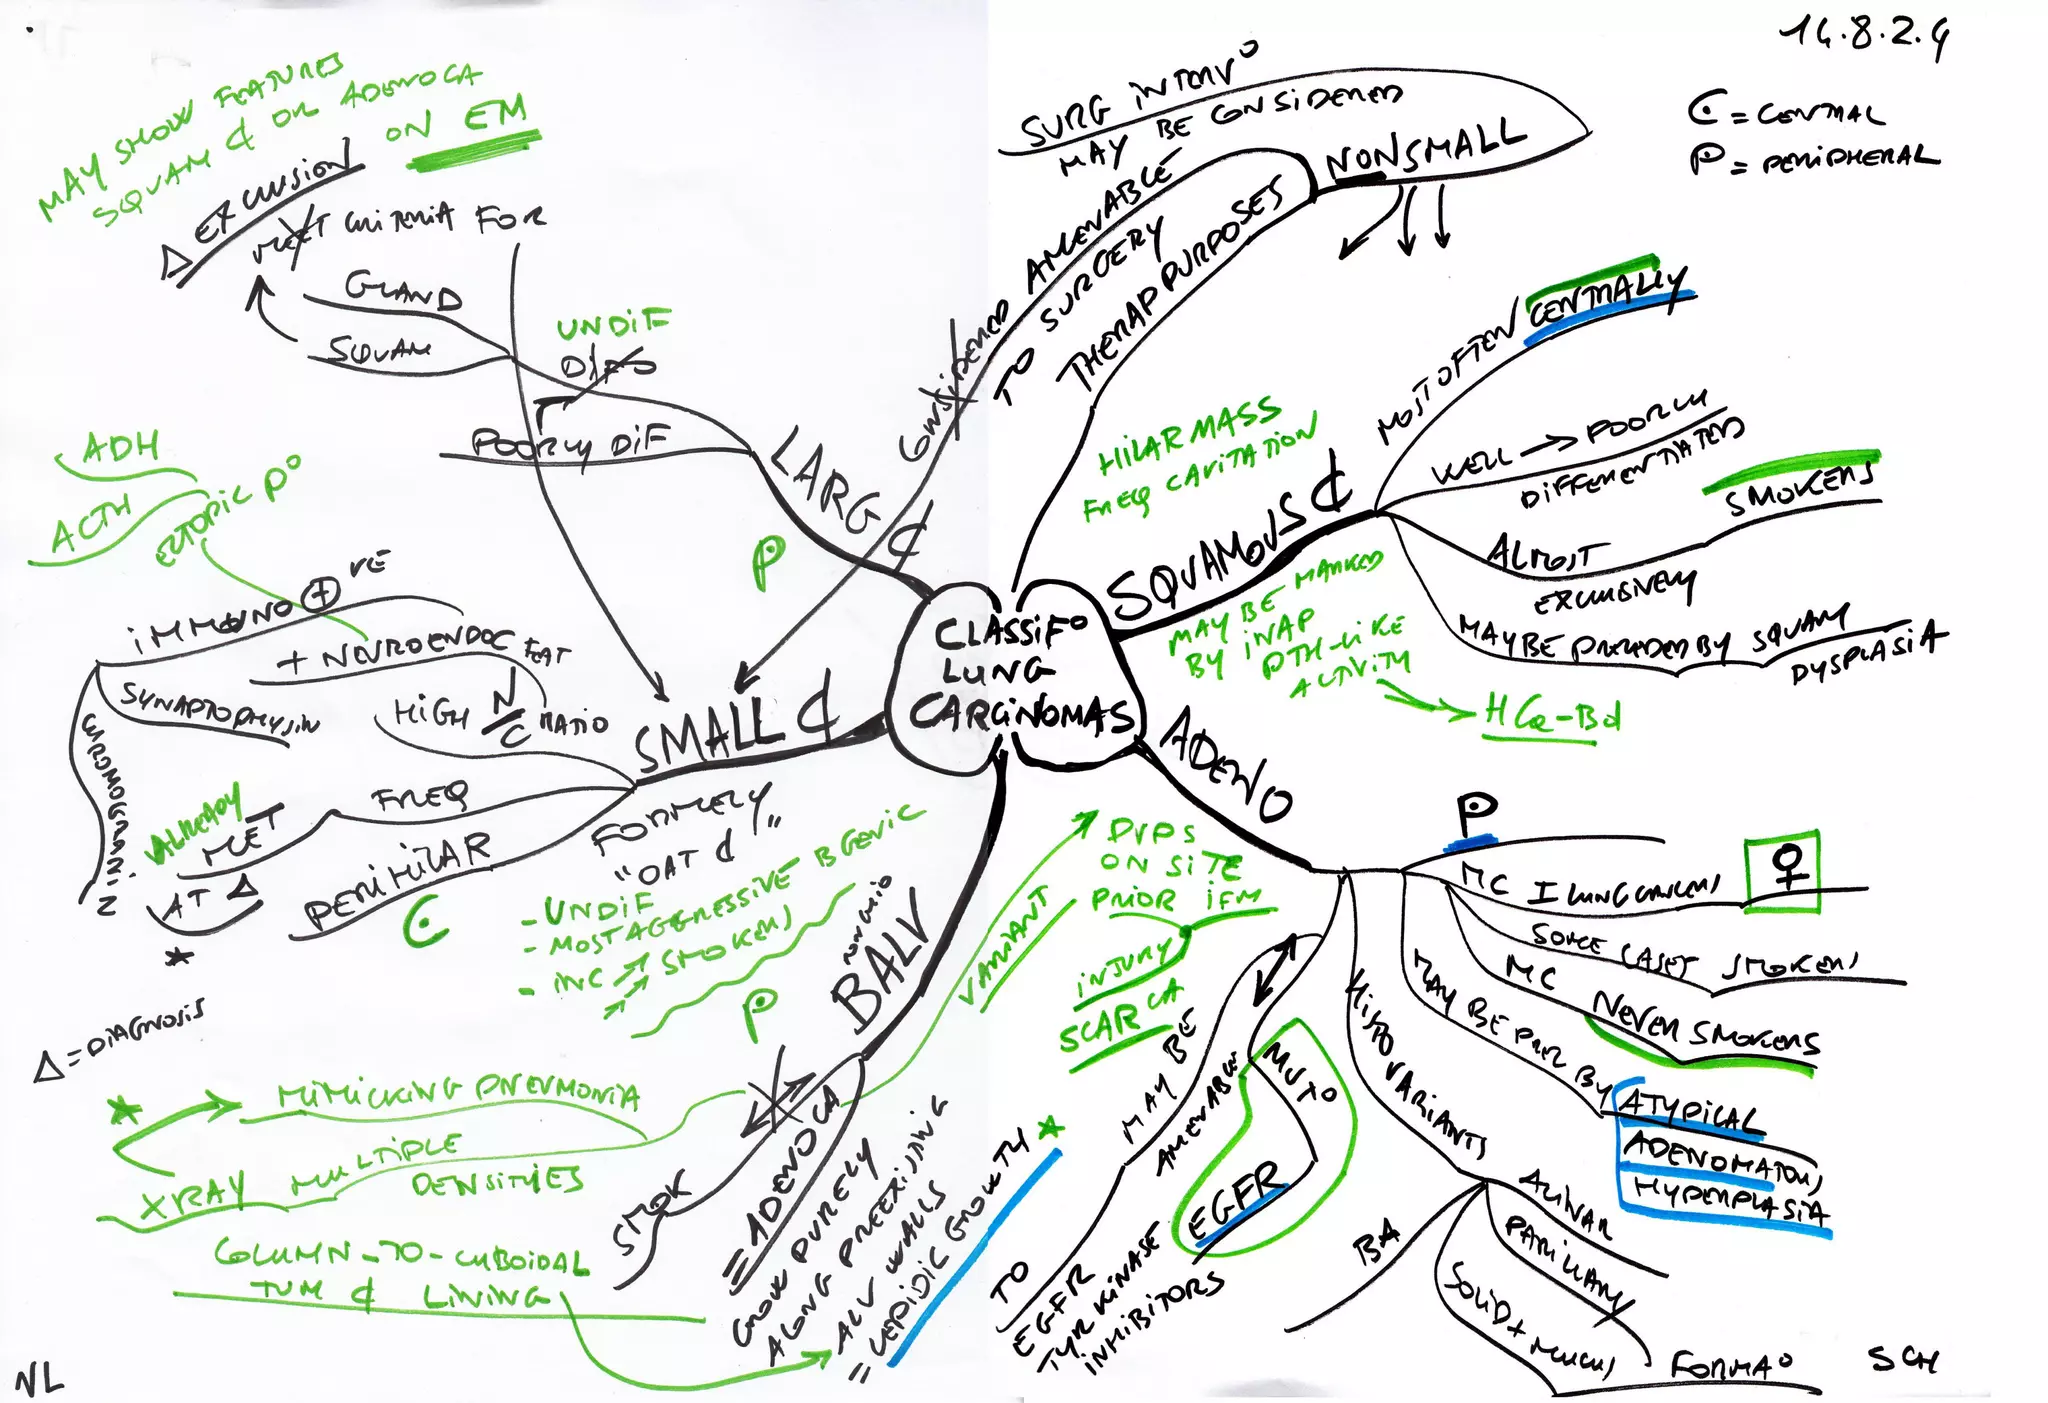 14.8.2.4
C = CENTRAL
P = PERIPHERAL
MAY SHOW FEATURES
SQUAM ₵ OR ADENOCA
ON EM
Δ EXCLUSION
MEET CRITERIA FOR
GLAND
SQUAM
UNDIF
DIF°
POORLY DIF
LARG ₵
P
SURG INTERV°
MAY BE CONSIDERED
NONSMALL
CONSIDERED AMENABLE
TO SURGERY
THERAP PURPOSES
CLASSIF°
LUNG
CARCINOMAS
SQUAMOUS ₵
MOST OFTEN CENTRALLY
WELL → POORLY
DIFFERENTIATED
ALMOST
EXCLUSIVELY
SMOKERS
MAY BE PRECEDED BY SQUAM
DYSPLASIA
HILAR MASS
FREQ CAVITATION
MAY BE MARKED
BY INAP
PTH-LIKE
ACTIVITY
HCa-Bd
ADENO
P
MC I LUNG CANCERS ♀
SOME CASES SMOKERS
MC NEVER SMOKERS
MAY BE PREC BY ATYPICAL
ADENOMATOUS
HYPERPLASIA
HISTO VARIANTS
ACINAR
PAPILLARY
SOLID + MUCUS FORMA°
BA
MUT°
EGFR
MAY BE
AMENABLE
TO
EGFR
TYR KINASE
INHIBITORS
SMALL ₵
FORMELY
"OAT ₵"
ADH
ACTH
ECTOPIC P°
IMMUNO + VE
SYNAPTOPHYSIN
CHROMOGRANIN
+ NEUROENDOC FEAT
HIGH N/C RATIO
FREQ
ALREADY
MET
AT Δ
*
PERIHILAR
C
- UNDIF
- MOST AGGRESSIVE BGENIC
- INC SMOKERS
Δ = DIAGNOSIS
BALV
P
VARIANT
DVPS
ON SITE
PRIOR IFM
INJURY
SCAR CA
SMOK
= ADENOCA
GROW PURELY
ALONG PREEXISTING
ALV WALLS
= LEPIDIC GROWTH *
* MIMICKING PNEUMONIA
XRAY MULTIPLE
DENSITIES
COLUMN-TO-CUBOIDAL
TUM ₵ LINING
NL
SCH